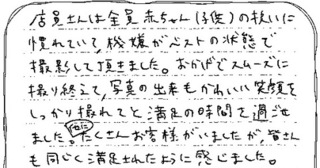 店員さんは全員赤ちゃん(子供)の扱いに
慣れていて機嫌がベストの状態で
撮影して頂きました。おかげでスムーズに
撮り終えて、写真の出来もかわいい笑顔を
しっかり撮れてと満足の時間を過ごせ
ました。他にたくさんお客様がいましたが、皆さん
も同じく満足されたように感じました。